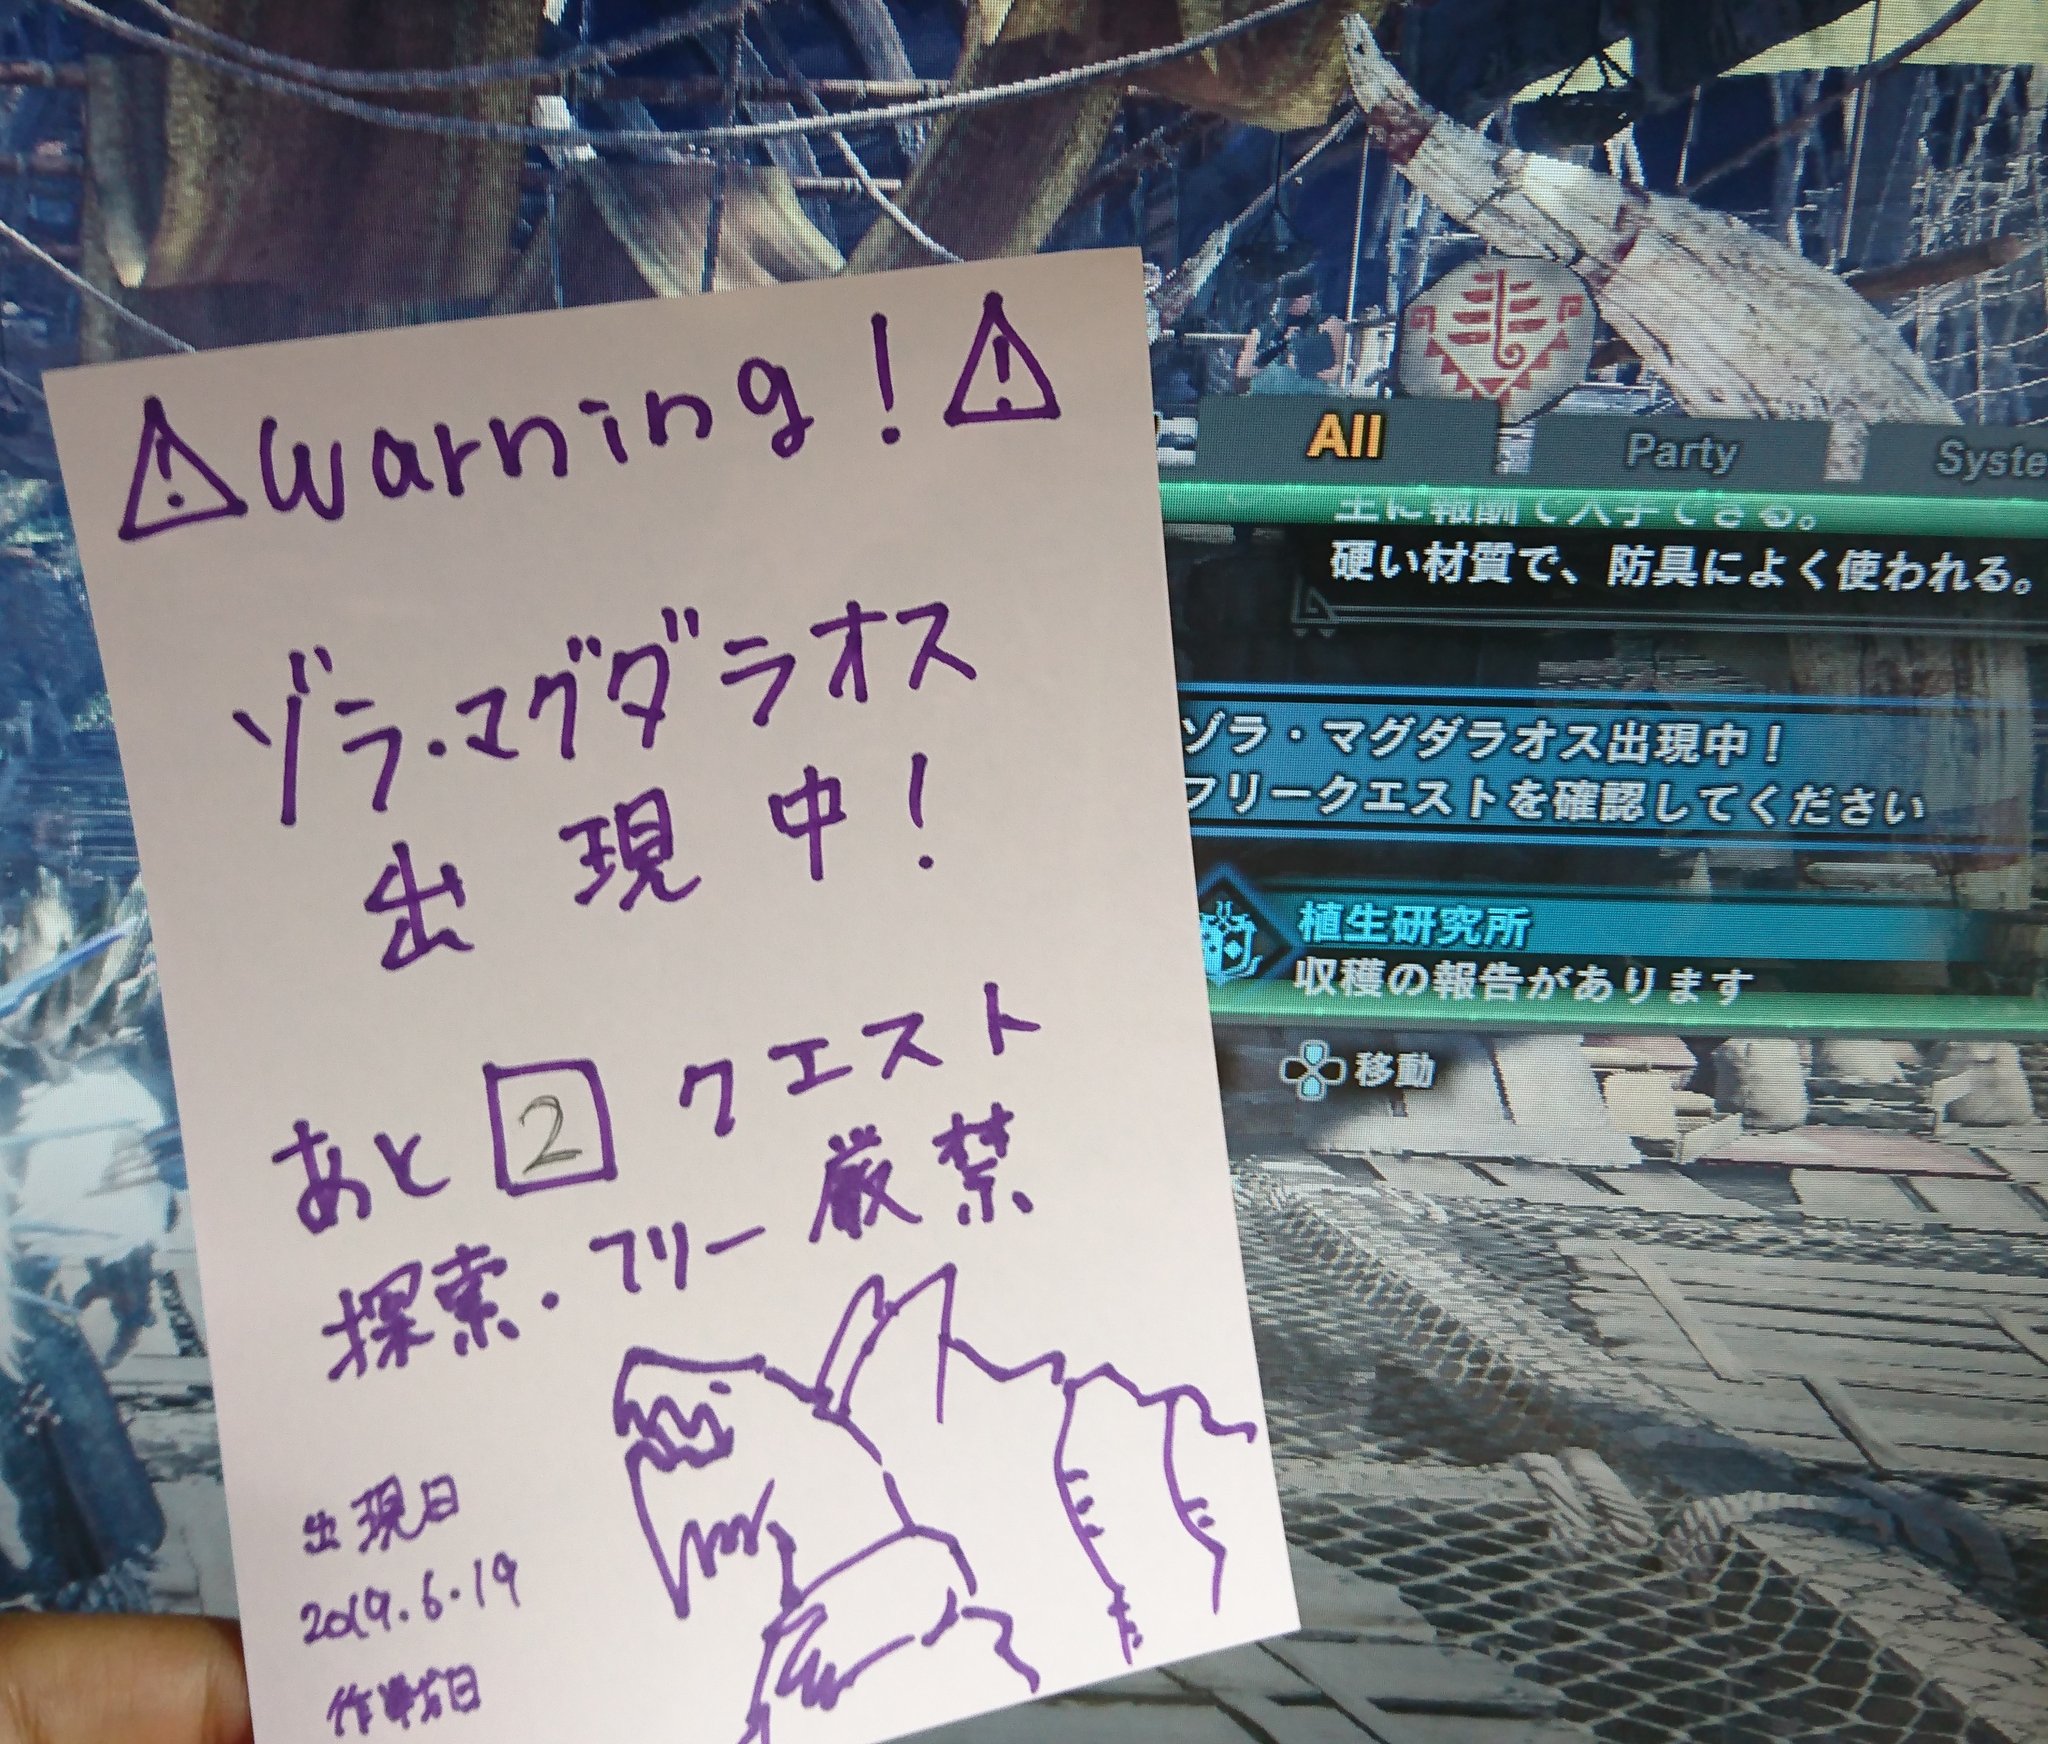 ⚠Warning!⚠
ゾラ・マグダラオス
出現中!
あと2クエスト
探索・フリー厳禁
出現日
2019.6.19
作戦日
All
Party
Syste
主に報酬で入手できる。
硬い材質で、防具によく使われる。
ゾラ・マグダラオス出現中!
フリークエストを確認してください
植生研究所
収穫の報告があります
移動